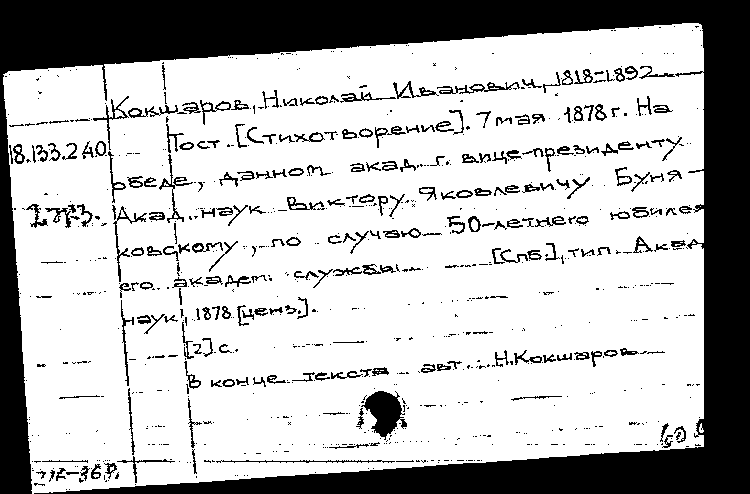 Кокшаров, Николай Иванович, 1818-1892.
18.133.240. Тост. [Стихотворение]. 7 мая 1878 г. На
обеде, данном акад. г. вице-президенту
2 экз. Акад. наук Виктору Яковлевичу Буня-
ковскому, по случаю 50-летнего юбилея
его академ. службы. [Спб.], тип. Акад.
наук, 1878 [ценз.].
[2] с.
В конце текста авт.: Н. Кокшаров